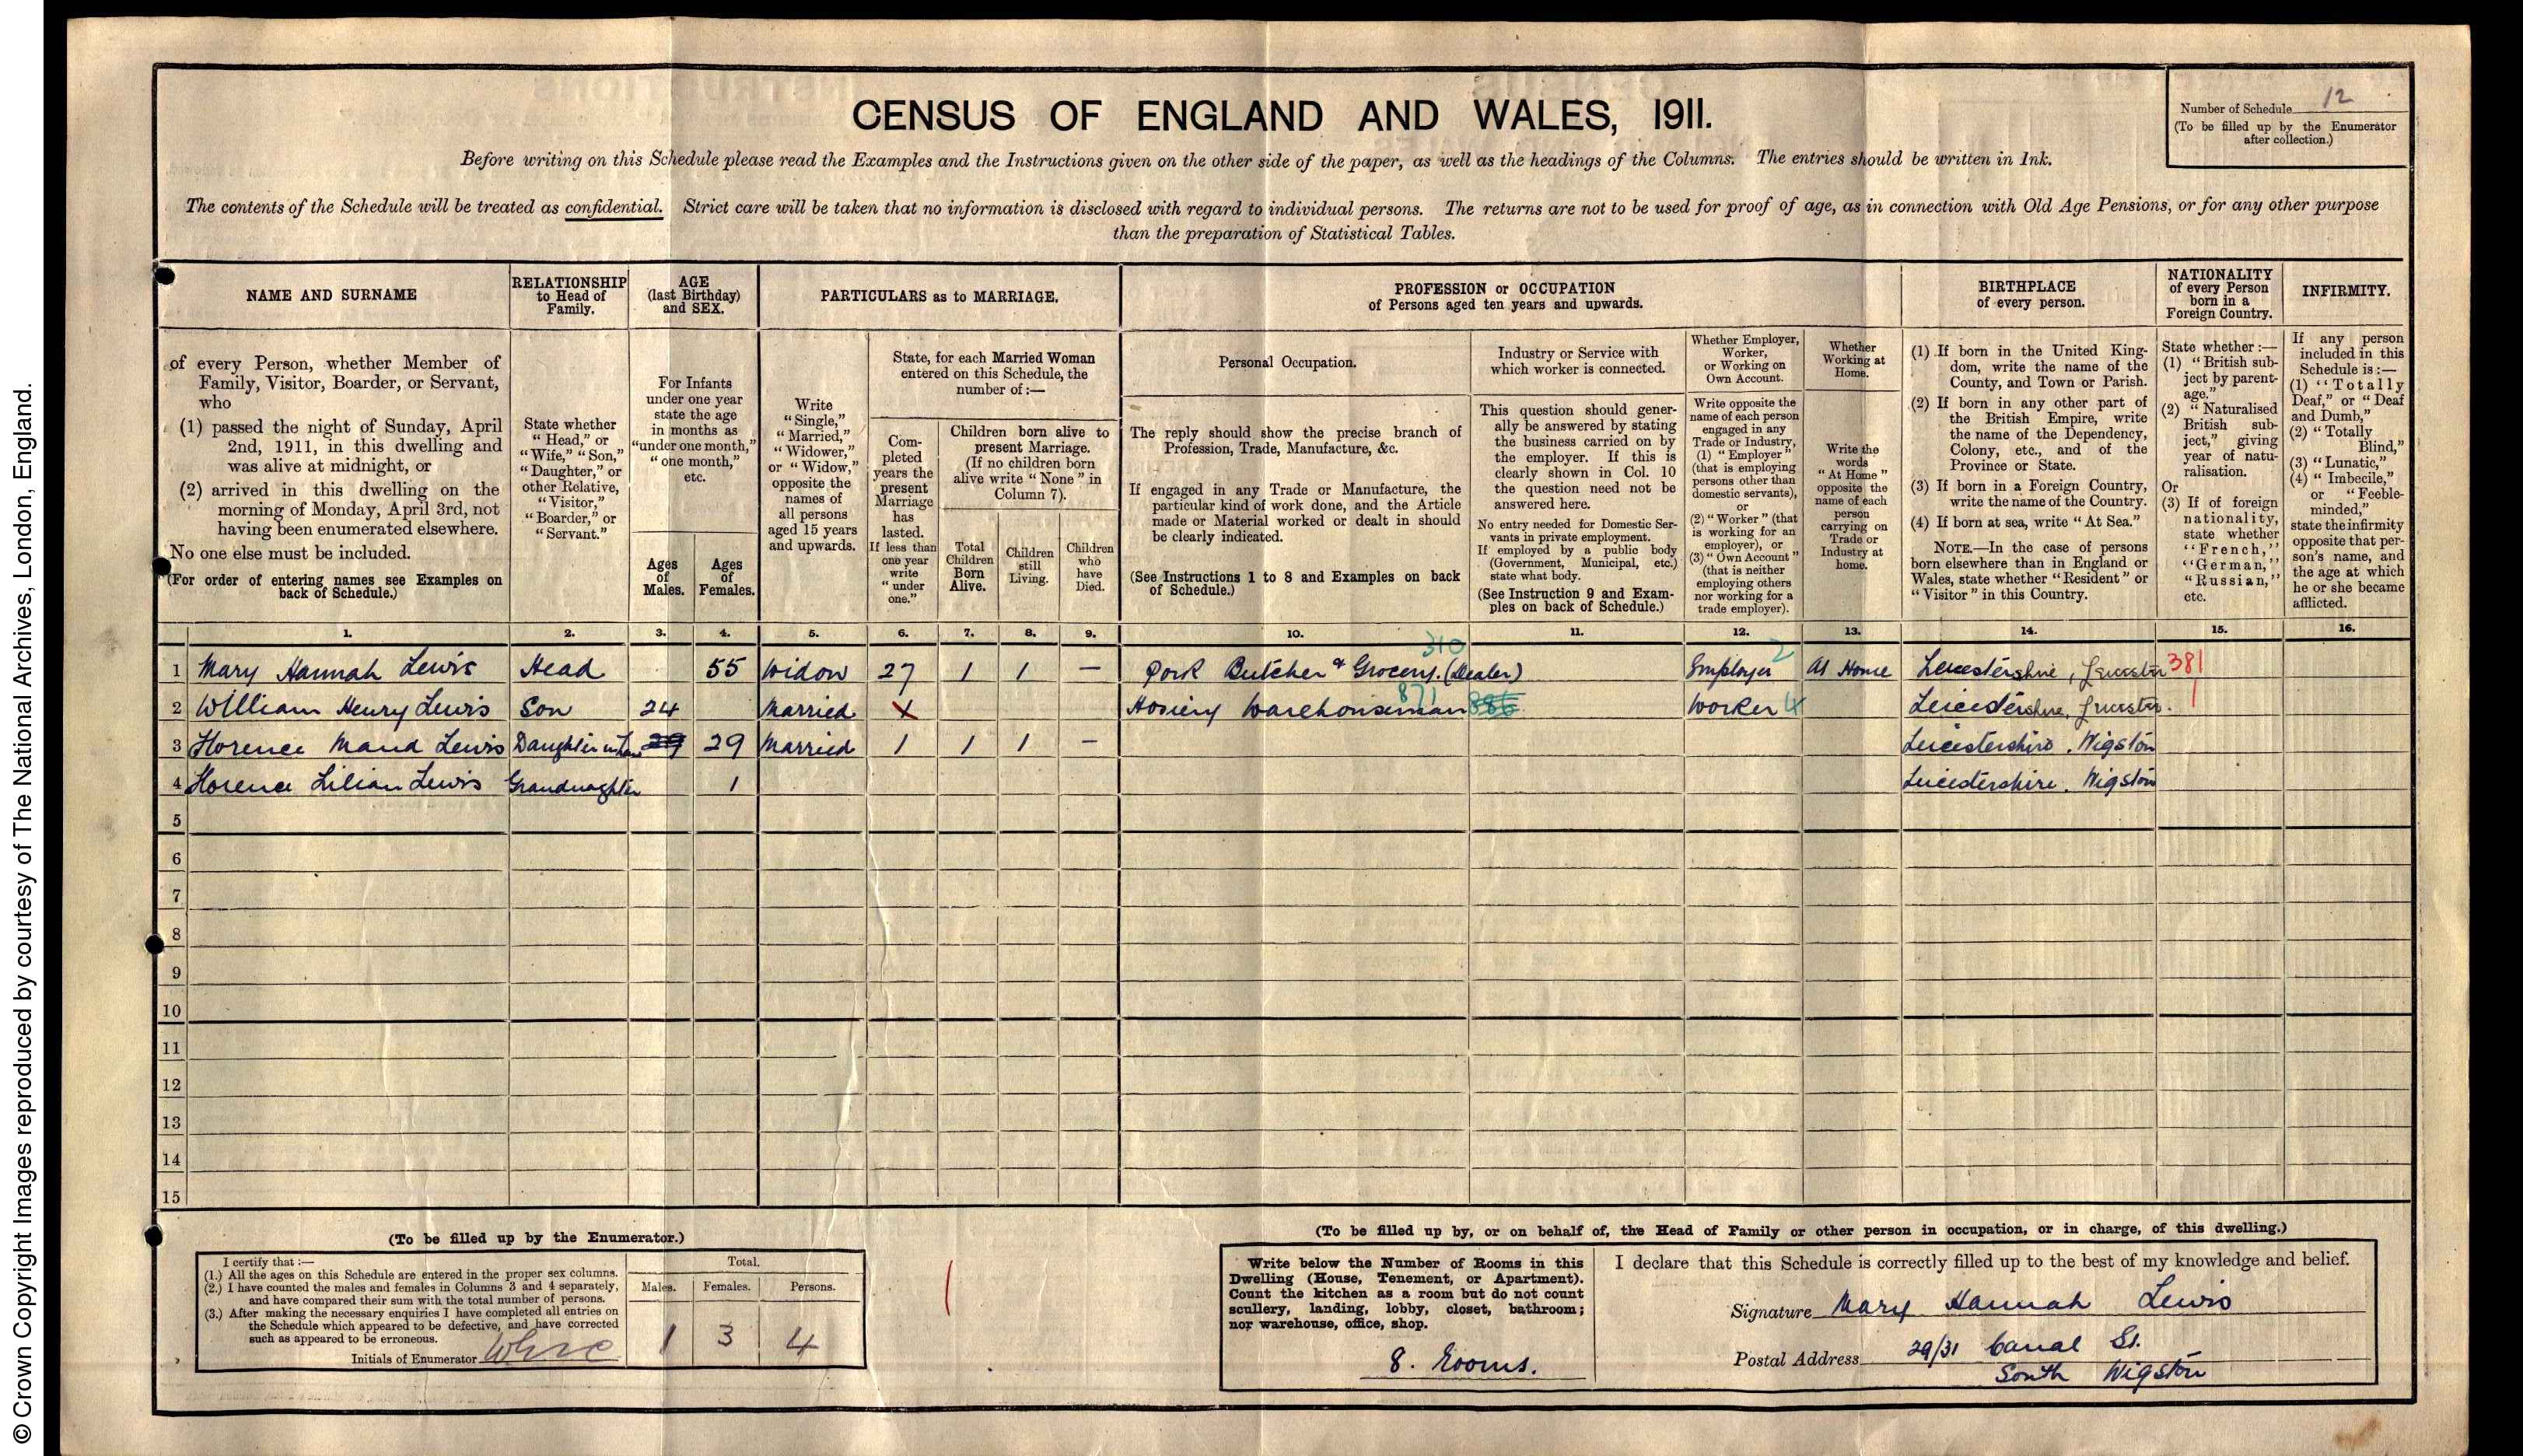 © Crown Copyright Images reproduced by courtesy of The National Archives, London, England.
CENSUS OF ENGLAND AND WALES, 1911.
Number of Schedule 12
(To be filled up by the Enumerator
after collection.)
Before writing on this Schedule please read the Examples and the Instructions given on the other side of the paper, as well as the headings of the Columns. The entries should be written in Ink.
The contents of the Schedule will be treated as confidential. Strict care will be taken that no information is disclosed with regard to individual persons. The returns are not to be used for proof of age, as in connection with Old Age Pensions, or for any other purpose
than the preparation of Statistical Tables.
NAME AND SURNAME
of every Person, whether Member of
Family, Visitor, Boarder, or Servant,
who
(1) passed the night of Sunday, April
2nd, 1911, in this dwelling and
was alive at midnight, or
(2) arrived in this dwelling on the
morning of Monday, April 3rd, not
having been enumerated elsewhere.
No one else must be included.
(For order of entering names see Examples on
back of Schedule.)
RELATIONSHIP
to Head of
Family.
State whether
"Head," or
"Wife," "Son,"
"Daughter," or
other Relative,
"Visitor,"
"Boarder," or
"Servant."
AGE
(last Birthday)
and SEX.
For Infants
under one year
state the age
in months as
"under one month,"
"one month,"
etc.
Ages
of
Males.
Ages
of
Females.
PARTICULARS as to MARRIAGE.
Write
"Single,"
"Married,"
"Widower,"
or "Widow,"
opposite the
names of
all persons
aged 15 years
and upwards.
State, for each Married Woman
entered on this Schedule, the
number of:—
Com-
pleted
years the
present
Marriage
has
lasted.
If less than
one year
write
"under
one."
Children born alive to
present Marriage.
(If no children born
alive write "None" in
Column 7).
Total
Children
Born
Alive.
Children
still
Living.
Children
who
have
Died.
PROFESSION or OCCUPATION
of Persons aged ten years and upwards.
Personal Occupation.
The reply should show the precise branch of
Profession, Trade, Manufacture, &c.
If engaged in any Trade or Manufacture, the
particular kind of work done, and the Article
made or Material worked or dealt in should
be clearly indicated.
(See Instructions 1 to 8 and Examples on back
of Schedule.)
Industry or Service with
which worker is connected.
This question should gener-
ally be answered by stating
the business carried on by
the employer. If this is
clearly shown in Col. 10
the question need not be
answered here.
No entry needed for Domestic Ser-
vants in private employment.
If employed by a public body
(Government, Municipal, etc.)
state what body.
(See Instruction 9 and Exam-
ples on back of Schedule.)
Whether Employer,
Worker,
or Working on
Own Account.
Write opposite the
name of each person
engaged in any
Trade or Industry,
(1) "Employer"
(that is employing
persons other than
domestic servants),
or
(2) "Worker" (that
is working for an
employer), or
(3) "Own Account"
(that is neither
employing others
nor working for a
trade employer).
Whether
Working at
Home.
Write the
words
"At Home"
opposite the
name of each
person
carrying on
Trade or
Industry at
home.
BIRTHPLACE
of every person.
(1) If born in the United King-
dom, write the name of the
County, and Town or Parish.
(2) If born in any other part of
the British Empire, write
the name of the Dependency,
Colony, etc., and of the
Province or State.
(3) If born in a Foreign Country,
write the name of the Country.
(4) If born at sea, write "At Sea."
NOTE.—In the case of persons
born elsewhere than in England or
Wales, state whether "Resident" or
"Visitor" in this Country.
NATIONALITY
of every Person
born in a
Foreign Country.
State whether:—
(1) "British sub-
ject by parent-
age."
(2) "Naturalised
British sub-
ject," giving
year of natu-
ralisation.
Or
(3) If of foreign
nationality,
state whether
"French,"
"German,"
"Russian,"
etc.
INFIRMITY.
If any person
included in this
Schedule is:—
(1) "Totally
Deaf," or "Deaf
and Dumb,"
(2) "Totally
Blind,"
(3) "Lunatic,"
(4) "Imbecile,"
or "Feeble-
minded,"
state the infirmity
opposite that per-
son's name, and
the age at which
he or she became
afflicted.
1. 2. 3. 4. 5. 6. 7. 8. 9. 10. 11. 12. 13. 14. 15. 16.
310
1 Mary Hannah Lewis Head 55 Widow 27 1 1 — Pork Butcher & Grocery. (Dealer) Employer 2 At Home Leicestershire, Leicester 381
2 William Henry Lewis Son 24 Married X Hosiery Warehouseman 871 886 Worker 4 Leicestershire, Leicester. 1
3 Florence Maud Lewis Daughter in Law 29 29 Married 1 1 1 — Leicestershire, Wigston
4 Florence Lilian Lewis Granddaughter 1 Leicestershire. Wigston
5
6
7
8
9
10
11
12
13
14
15
(To be filled up by the Enumerator.)
I certify that:—
(1.) All the ages on this Schedule are entered in the proper sex columns.
(2.) I have counted the males and females in Columns 3 and 4 separately,
and have compared their sum with the total number of persons.
(3.) After making the necessary enquiries I have completed all entries on
the Schedule which appeared to be defective, and have corrected
such as appeared to be erroneous.
Initials of Enumerator
Total.
Males. Females. Persons.
1 3 4
(To be filled up by, or on behalf of, the Head of Family or other person in occupation, or in charge, of this dwelling.)
Write below the Number of Rooms in this
Dwelling (House, Tenement, or Apartment).
Count the kitchen as a room but do not count
scullery, landing, lobby, closet, bathroom;
nor warehouse, office, shop.
8. Rooms.
I declare that this Schedule is correctly filled up to the best of my knowledge and belief.
Signature Mary Hannah Lewis
Postal Address 29/31 Canal St.
South Wigston